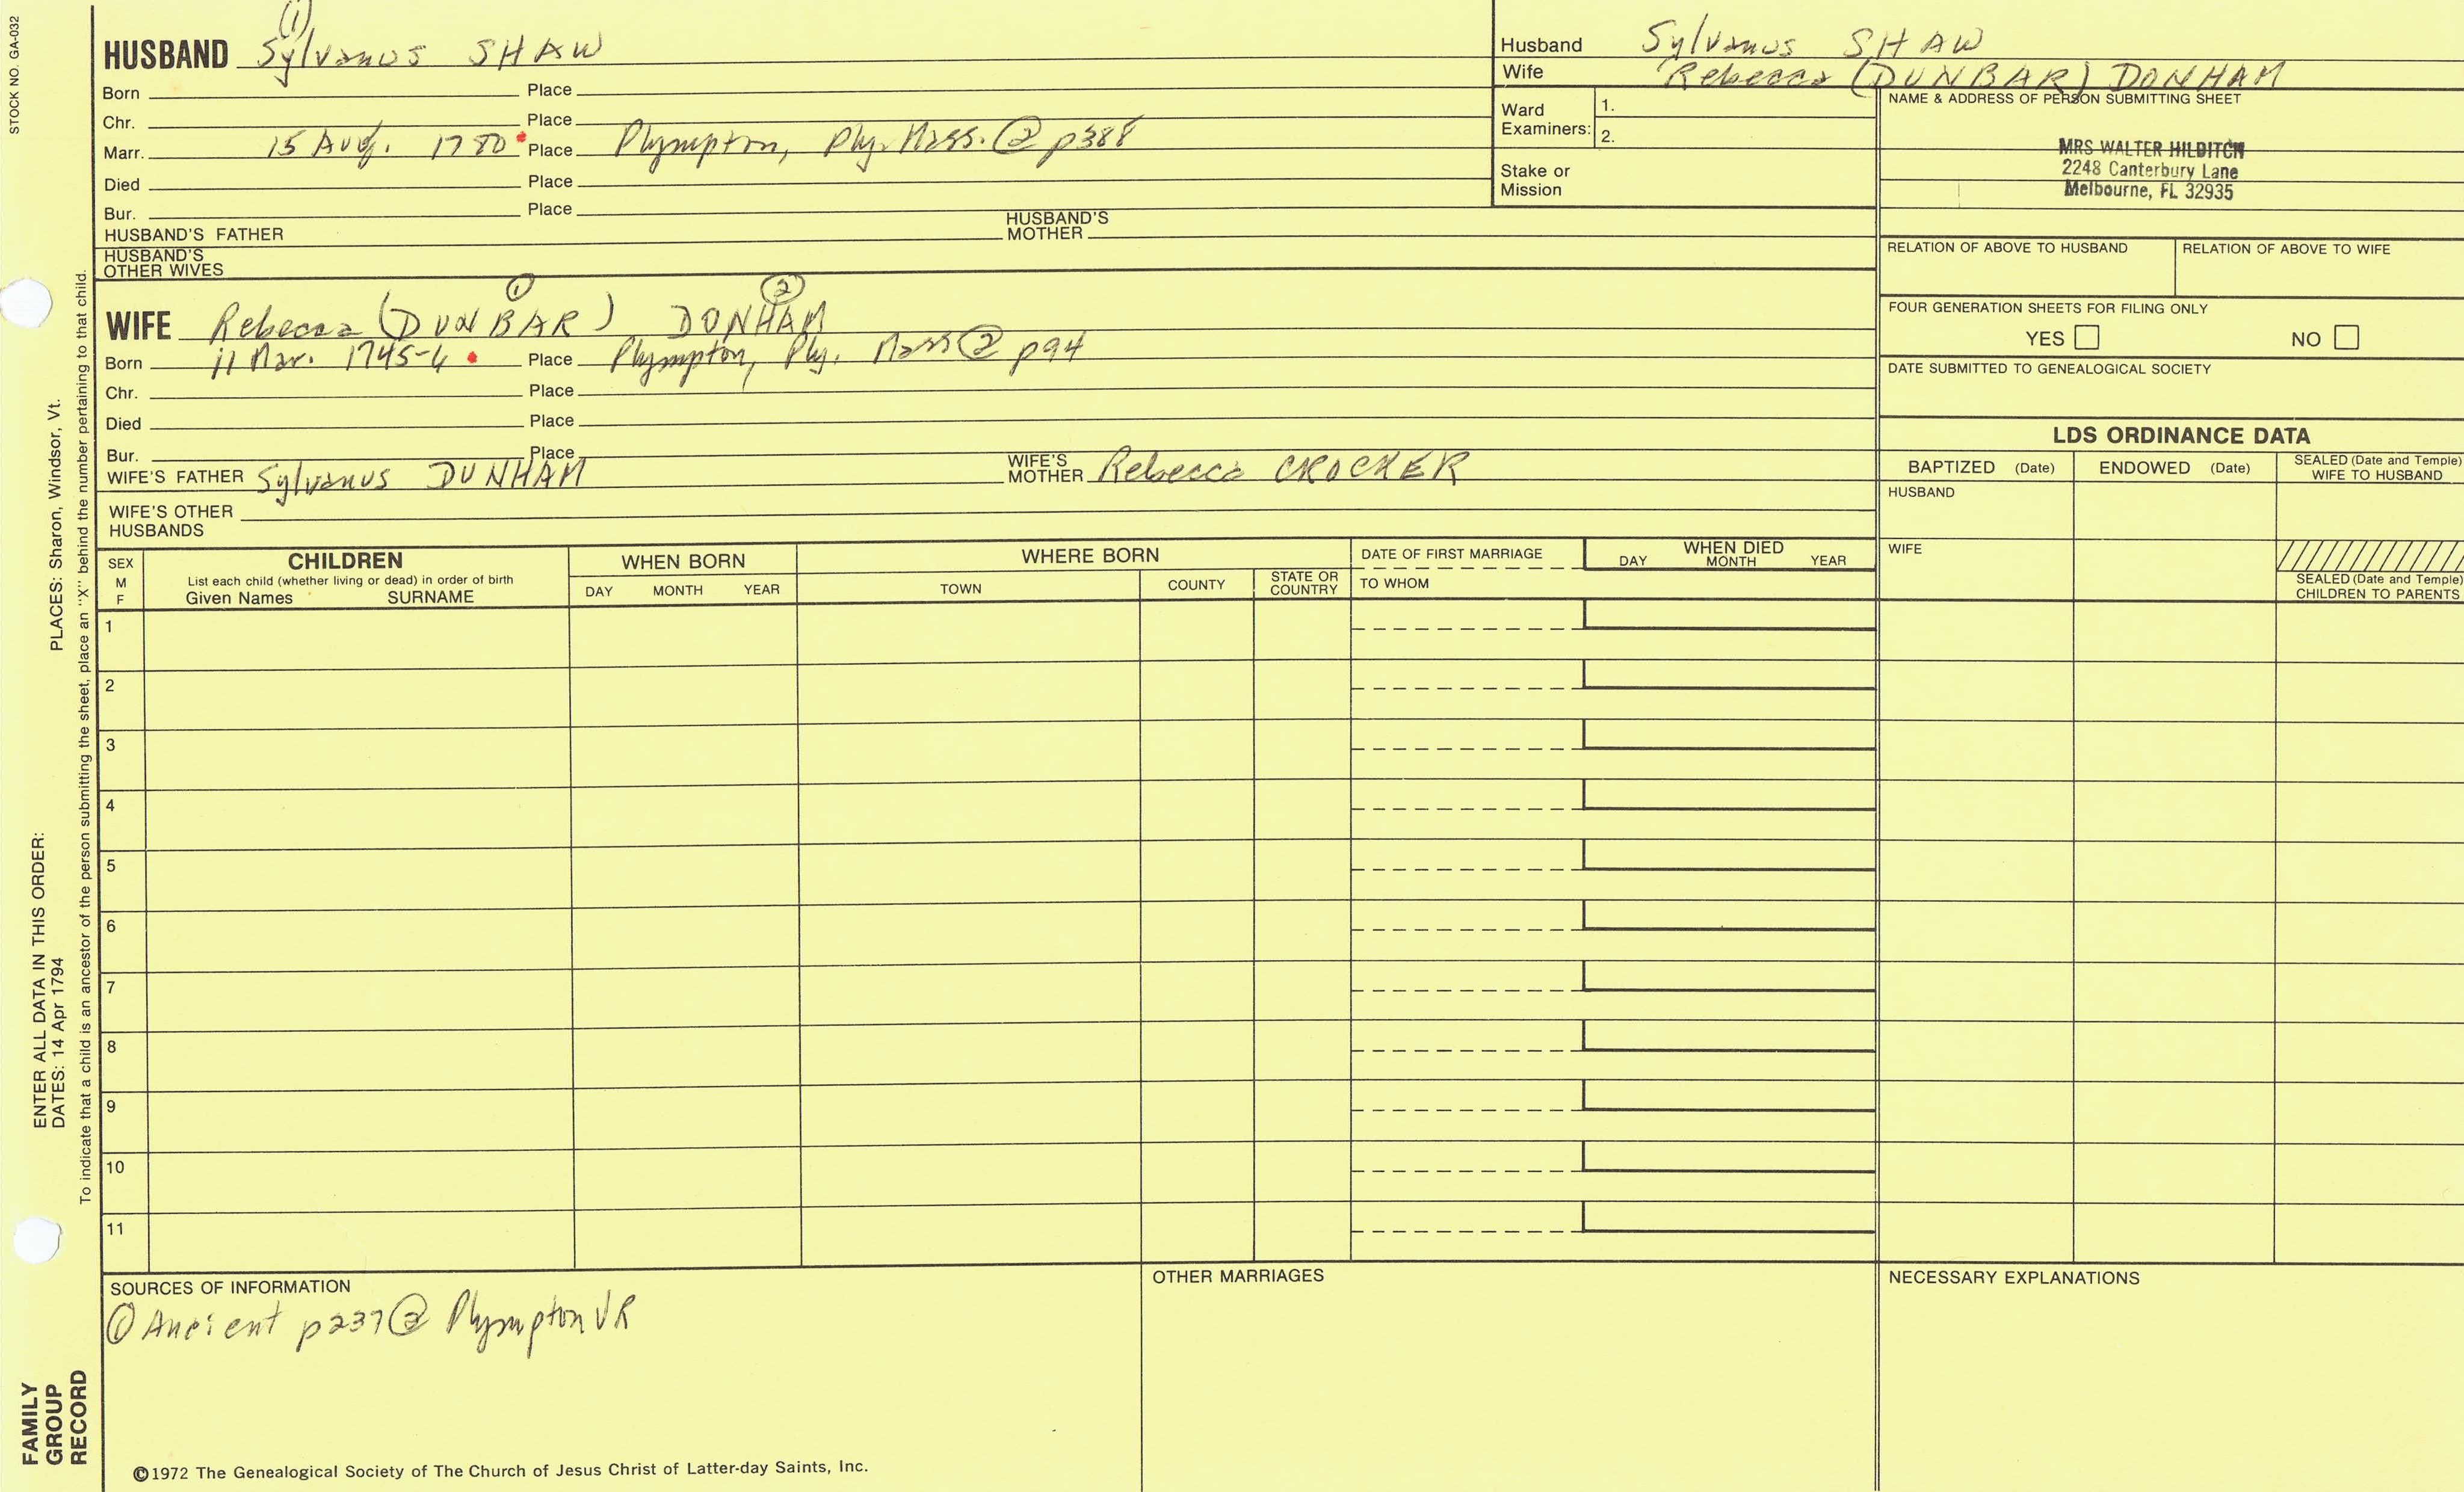 STOCK NO. GA-032
(1)
HUSBAND Sylvanus SHAW
Born Place
Chr. Place
Marr. 15 Aug. 1780 Place Plympton, Ply. Mass. ② p388
Died Place
Bur. Place
HUSBAND'S FATHER HUSBAND'S MOTHER
HUSBAND'S OTHER WIVES
① ②
WIFE Rebecca (DUNBAR) DONHAM
Born 11 Mar. 1745-6 Place Plympton, Ply. Mass ② p94
Chr. Place
Died Place
Bur. Place
WIFE'S FATHER Sylvanus DUNHAM WIFE'S MOTHER Rebecca CROCKER
WIFE'S OTHER HUSBANDS
Husband Sylvanus SHAW
Wife Rebecca (DUNBAR) DONHAM
Ward Examiners: 1.
2.
Stake or Mission
NAME & ADDRESS OF PERSON SUBMITTING SHEET
MRS WALTER HILDITCH
2248 Canterbury Lane
Melbourne, FL 32935
RELATION OF ABOVE TO HUSBAND RELATION OF ABOVE TO WIFE
FOUR GENERATION SHEETS FOR FILING ONLY
YES NO
DATE SUBMITTED TO GENEALOGICAL SOCIETY
LDS ORDINANCE DATA
BAPTIZED (Date) ENDOWED (Date) SEALED (Date and Temple) WIFE TO HUSBAND
HUSBAND
WIFE
SEALED (Date and Temple) CHILDREN TO PARENTS
SEX M F
CHILDREN
List each child (whether living or dead) in order of birth
Given Names SURNAME
WHEN BORN
DAY MONTH YEAR
WHERE BORN
TOWN COUNTY STATE OR COUNTRY
DATE OF FIRST MARRIAGE
TO WHOM
WHEN DIED
DAY MONTH YEAR
1
2
3
4
5
6
7
8
9
10
11
SOURCES OF INFORMATION
① Ancient p237 ② Plympton VR
OTHER MARRIAGES
NECESSARY EXPLANATIONS
©1972 The Genealogical Society of The Church of Jesus Christ of Latter-day Saints, Inc.
FAMILY GROUP RECORD
ENTER ALL DATA IN THIS ORDER:
DATES: 14 Apr 1794 PLACES: Sharon, Windsor, Vt.
To indicate that a child is an ancestor of the person submitting the sheet, place an "X" behind the number pertaining to that child.